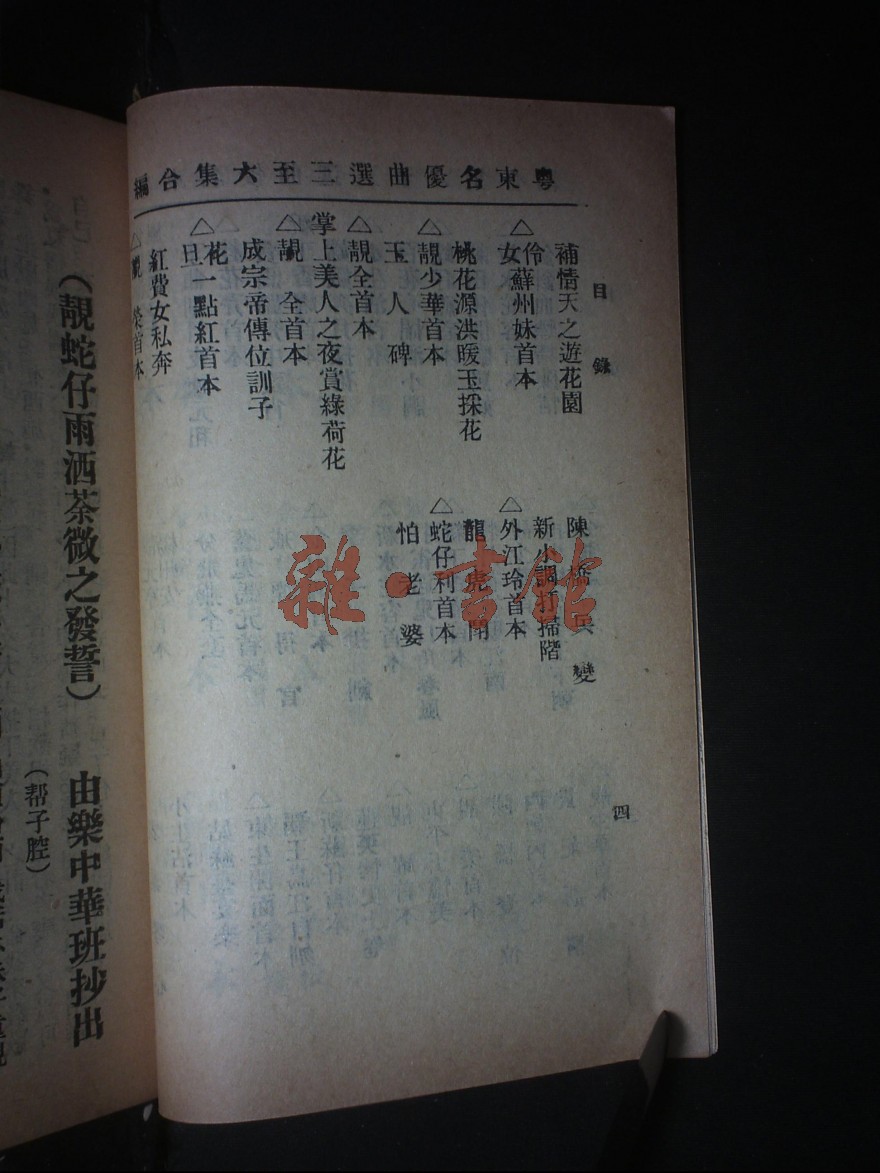 粵東名優曲選三至六集合編
目錄
四
補情天之遊花園
△伶女蘇州妹首本
桃花源洪暖玉採花
△靚少華首本
玉人碑
△靚全首本
掌上美人之夜賞綠荷花
△靚全首本
成宗帝傳位訓子
△花旦一點紅首本
紅費女私奔
首本
陳橋兵變
新小調打掃階
△外江玲首本
龍虎鬧
△蛇仔利首本
怕老婆
雜·書館
(靚蛇仔雨洒荼薇之發誓) 由樂中華班抄出
(帮子腔)